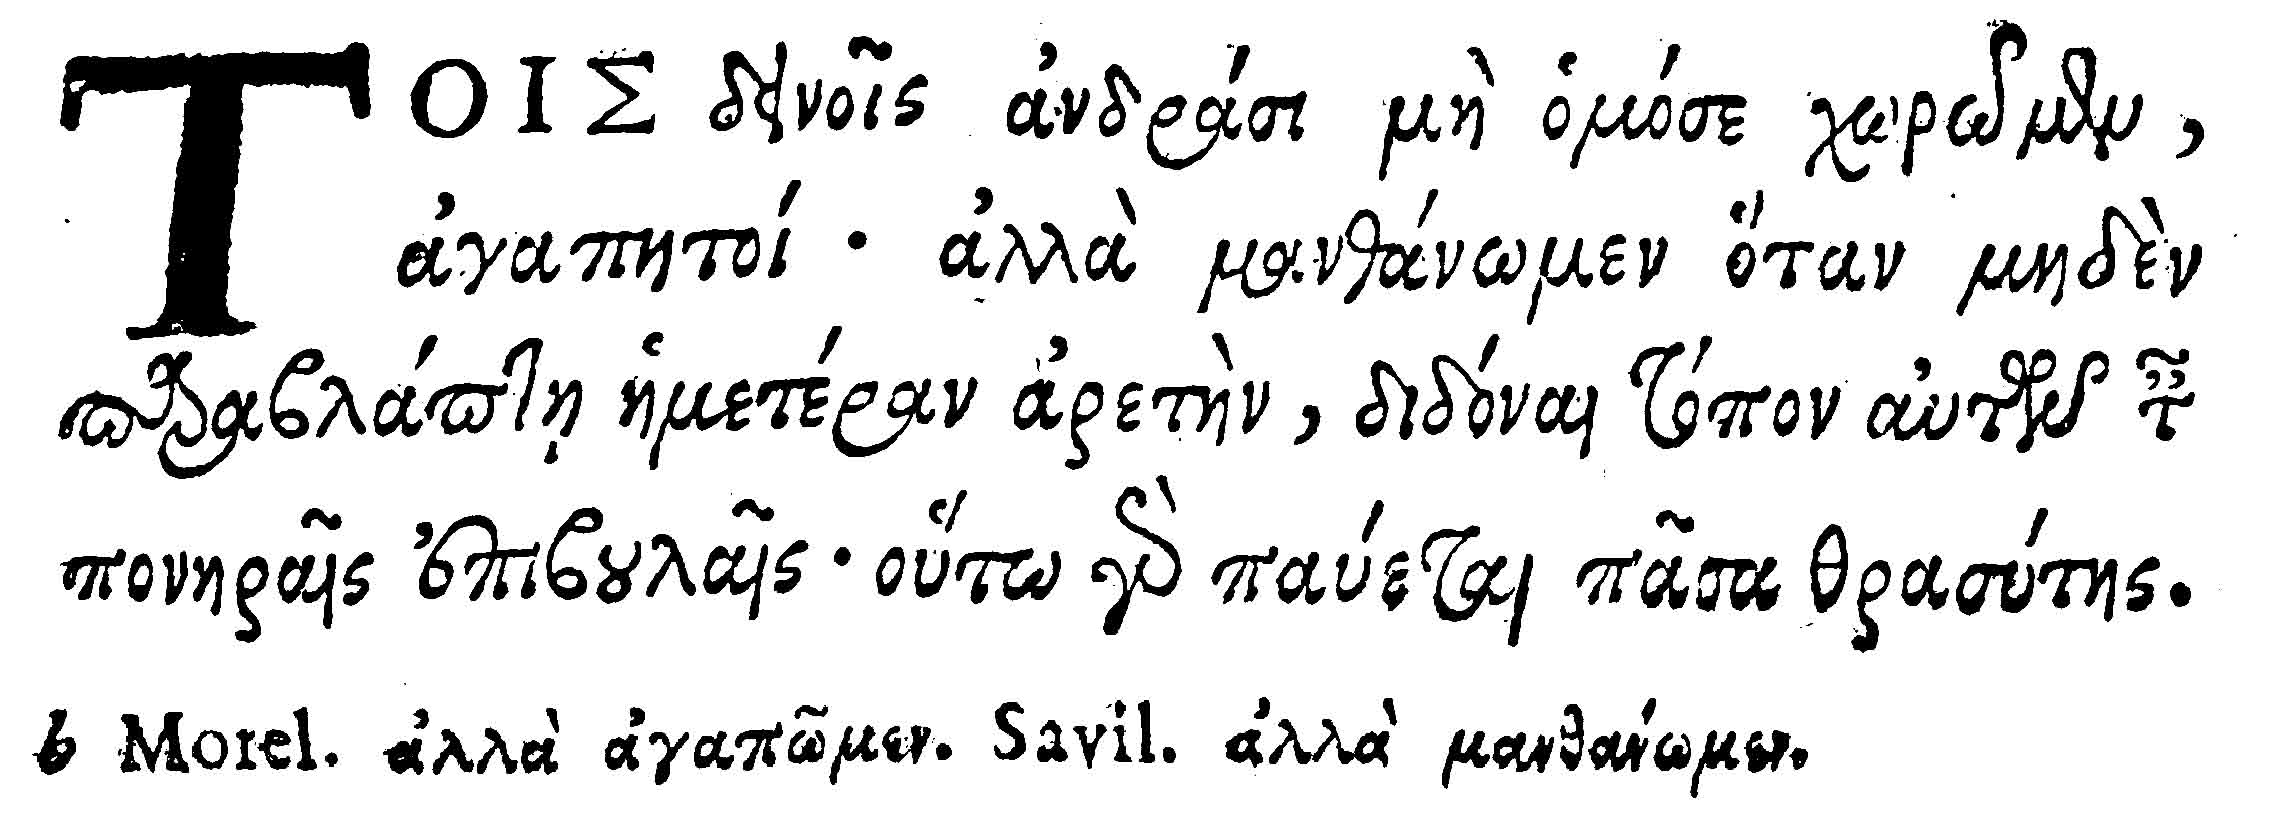 ΤΟΙΣ δεινοῖς ἀνδράσι μὴ ὁμόσε χωρῶμεν,
ἀγαπητοί· ἀλλὰ μανθάνωμεν ὅταν μηδὲν
παραβλάπτῃ ἡμετέραν ἀρετὴν, διδόναι τόπον αὐτῶν ταῖς
πονηραῖς ἐπιβουλαῖς· οὕτω γὰρ παύεται πᾶσα θρασύτης.
b Morel. ἀλλὰ ἀγαπῶμεν. Savil. ἀλλὰ μανθάνωμεν.